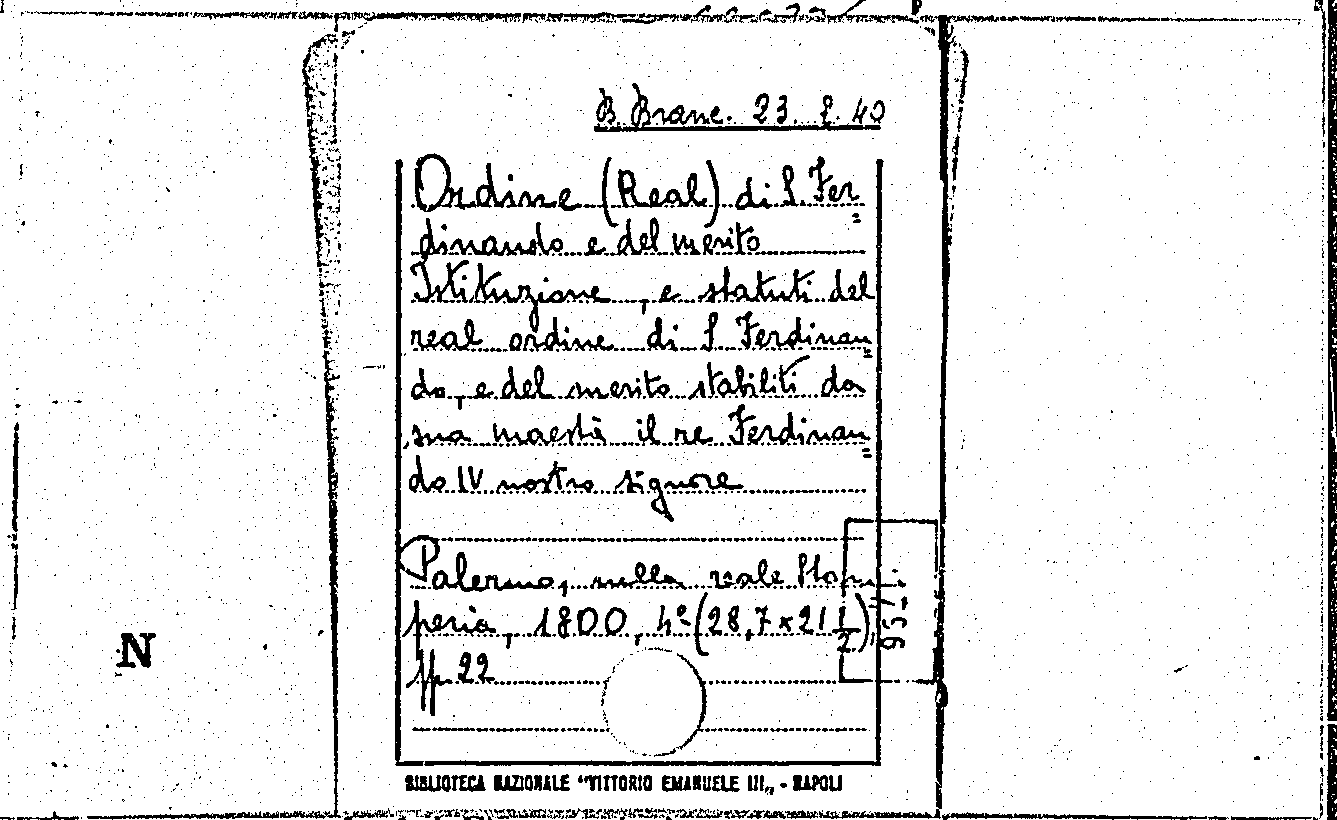 B. Branc. 23. E. 40
Ordine (Real) di S. Fer=
dinando e del merito
Istituzione, e statuti del
real ordine di S Ferdinan=
do, e del merito stabiliti da
sua maestà il re Ferdinan=
do IV nostro signore
Palermo, nella reale Stam
peria, 1800, 4º (28,7 x 21 1/2),
pp. 22
N
BIBLIOTECA NAZIONALE "VITTORIO EMANUELE III„ - NAPOLI